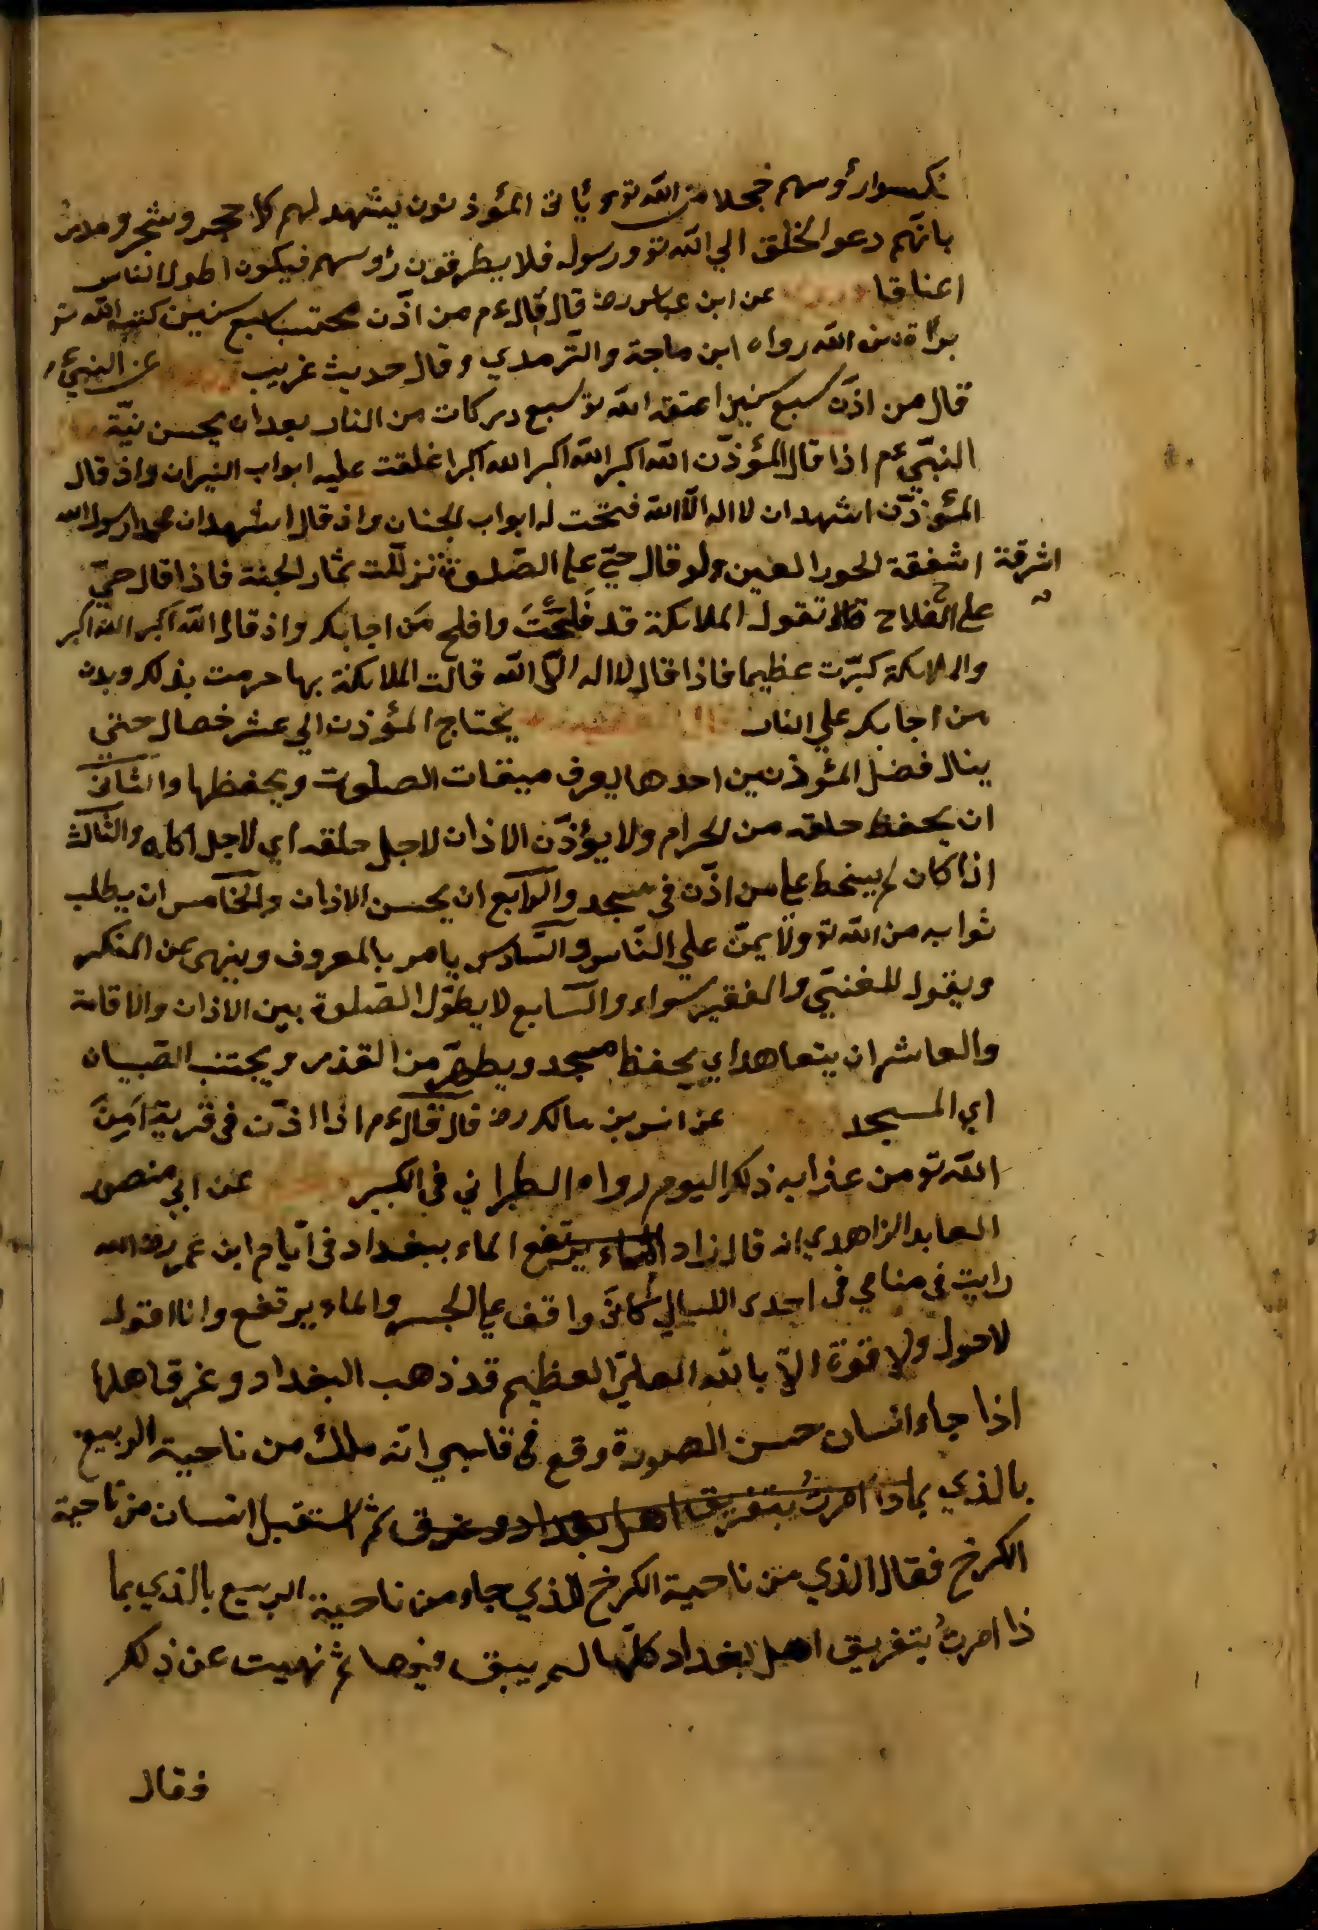 نكسوا رؤسهم خجلا من الله تو و يأتى المؤذنون يشهد لهم كل حجر وشجر ومدر
بانّهم دعوا الخلق الي الله تو ورسوله فلا يطرقون رؤسهم فيكون اطول الناس
اعناقا عن ابن عباس رض قال قال ءم من اذّن محتسبا سبع سنين كتب الله تو
براة من الله رواه ابن ماجة والتّرمدي وقال حديث غريب عن النبيّ ء
قال من اذّن سبع سنين اعتقه الله تو سبع دركات من النار بعد ان يحسن نيّته
النبّي ءم اذا قال المؤذّن الله اكبر الله اكبر الله اكبر اغلقت عليه ابواب النيران واذ قال
المؤذّن اشهد ان لا اله الّا الله فتحت له ابواب الجنان واذ قال اشهد ان محمدا رسول الله
اشرقة اشفقة الحور العين ولو قال حيّ علي الصّلوة تزللت ثمار الجنة فاذا قال حيّ
علي الفلاح قال تقول الملائكة قد فلحت وافلح من اجابكر واذ قال الله اكبر الله اكبر
والملائكة كبّرت عظيما فاذا قال لا اله الّا الله قالت الملائكة بها حرمت بذلكر وبدن
من اجابكر علي النار يحتاج المؤذن الي عشر خصال حتي
ينال فضل المئوذنين احدها يعرف ميقات الصلوت ويحفظها والثانى
ان يحفظ حلقه من الحرام ولا يؤذّن الاذان لاجل حلقه اي لاجل اكله والثالث
اذا كان لم يسخط علي من اذّن في مسجد والرابع ان يحسن الاذان والخامس ان يطلب
ثوابه من الله تو ولا يمنّ علي النّاس والسّادس يامر بالمعروف وينهى عن المنكر
ويقول للغنيّ والفقير سواء والسّابع لا يطوّل الصّلوة بين الاذان والاقامة
والعاشر ان يتعاهد اي يحفظ مسجد ويطهّر من القذر ويجتنب الصّبيان
اي المسجد عن انس بن مالكر رض قال قال ءم اذا اذّن في قرية امن
الله تو من عذابه ذلكر اليوم رواه الطبراني في الكبير عن ابي منصور
العابد الزاهدي انه قال زاد الماء يرتفع الماء ببغداد في ايّام ابن عمر رض الله
رايت في منامي في احدى الليالي كانّي واقف علي الجسر والماء يرتفع وانا اقول
لا حول ولا قوّة الّا بالله العليّ العظيم قد ذهب البغداد وغرق اهلها
اذا جاء انسان حسن الصورة وقع في قلبي انّه ملك من ناحية الربيع
بالذي بماذا امرت بتغريق اهل بغداد وغرق ثم استقبل انسان من ناحية
الكرخ فقال الذي من ناحية الكرخ للذي جاء من ناحية الربيع بالذي بما
ذا امرت بتغريق اهل بغداد كلّها لم يبق فيها ثم نهيت عن ذلكر
فقال